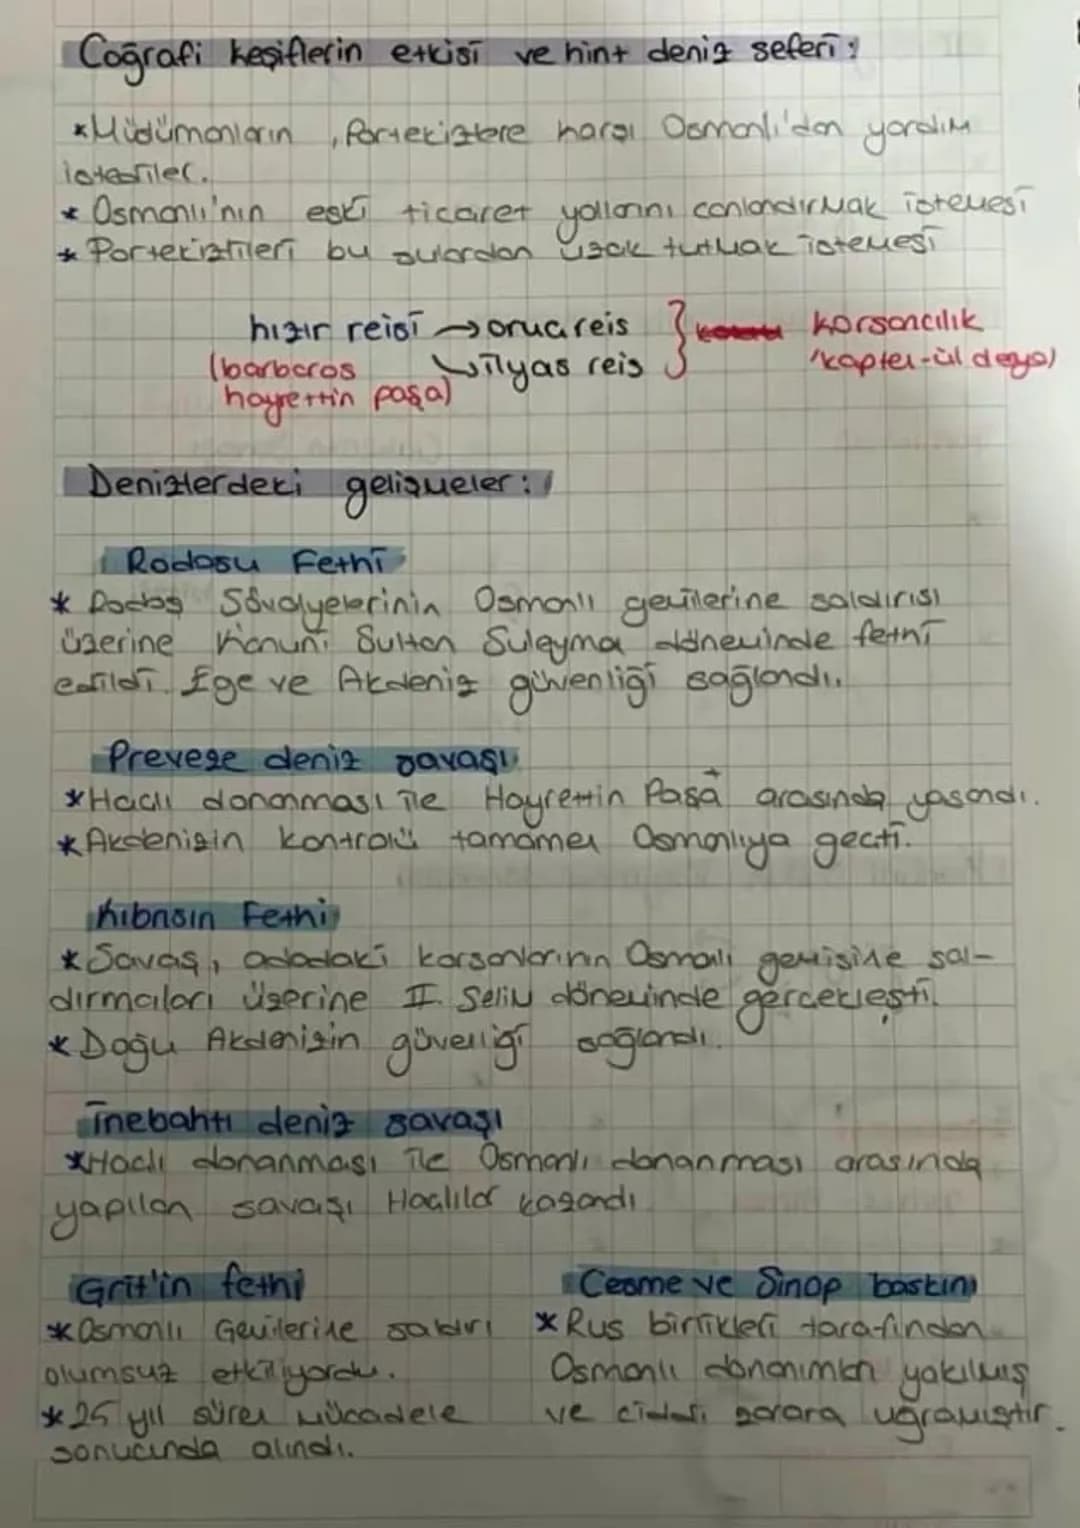 Coğrafi keşiflerin etkisi ve hint deniz seferi:
*Müslümanların, Portekizlere karşı Osmanlı'dan yardım
istediler.
* Osmanlı'nın eski ticaret yollarını canlandırmak istemesi
* Portekizlileri bu sulardan uzak tutmak istemesi
hızır reisi → oruc reis } korsancılık
(barbaros ↘ ilyas reis (kapter-ül derya)
hayrettin paşa)
Denizlerdeki gelişmeler:
Rodosu Fethi
* Rodos Şövalyelerinin Osmanlı gemilerine saldırısı
üzerine Kanuni Sultan Suleyman döneminde fethi
edildi. Ege ve Akdeniz güvenliği sağlandı.
Preveze deniz savaşı
*Haclı donanması ile Hayrettin Paşa arasında yasandı.
*Akdenizin kontrolü tamamen Osmanlıya gecti.
Kıbrısın Fethi
*Savaş, adadaki korsanlarının Osmanlı gemisine sal-
dırmaları üzerine II. Selim döneminde gerceklesti.
*Doğu Akdenizin güvenliği sağlandı.
İnebahtı deniz savaşı
*Haclı donanması ile Osmanlı donanması arasında
yapılan savaşı Haclılar kazandı
Grit'in fethi
*Osmanlı Gemilerine saldırı
olumsuz etkiliyordu.
*25 yıl süren mücadele
sonucunda alındı.
Cesme ve Sinop baskını
*Rus birlikleri tarafından
Osmanlı donanımları yakılmış
ve ciddi zarara uğramıştır.